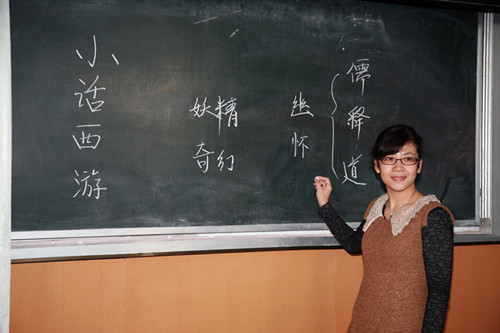 小话西游
妖精
奇幻
幽怀
儒释道